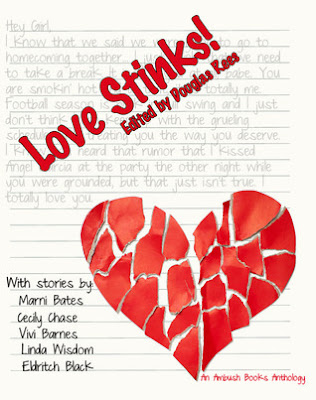 Hey Girl,
I know that we said we to go to
homecoming together. need
to take a break. It babe. You
are smokin' hot totally me.
Football season is swing and I just
don't think with the grueling
schedule treating you the way you deserve.
I heard that rumor that I kissed
Angel at the party the other night while
you were grounded, but that just isn't true. I
totally love you.
Love Stinks!
Edited by Douglas Rees
With stories by:
Marni Bates
Cecily Chase
Vivi Barnes
Linda Wisdom
Eldritch Black
An Ambush Books Anthology